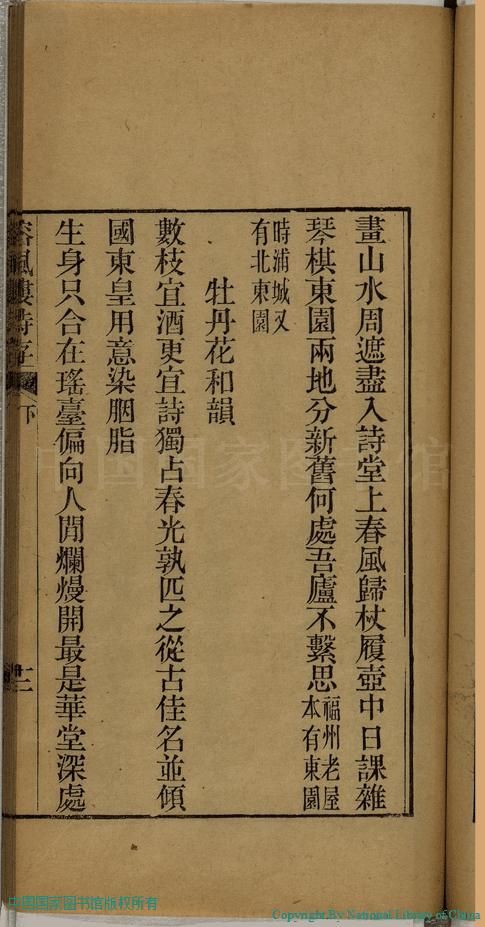 畫山水周遮盡入詩堂上春風歸杖履壺中日課雜
琴棋東園兩地分新舊何處吾廬不繫思福州老屋本有東園
時浦城又有北東園
牡丹花和韻
數枝宜酒更宜詩獨占春光孰匹之從古佳名並傾
國東皇用意染胭脂
生身只合在瑤臺偏向人閒爛熳開最是華堂深處
下
中国国家图书馆
中国国家图书馆版权所有
Copyright By National Library of China